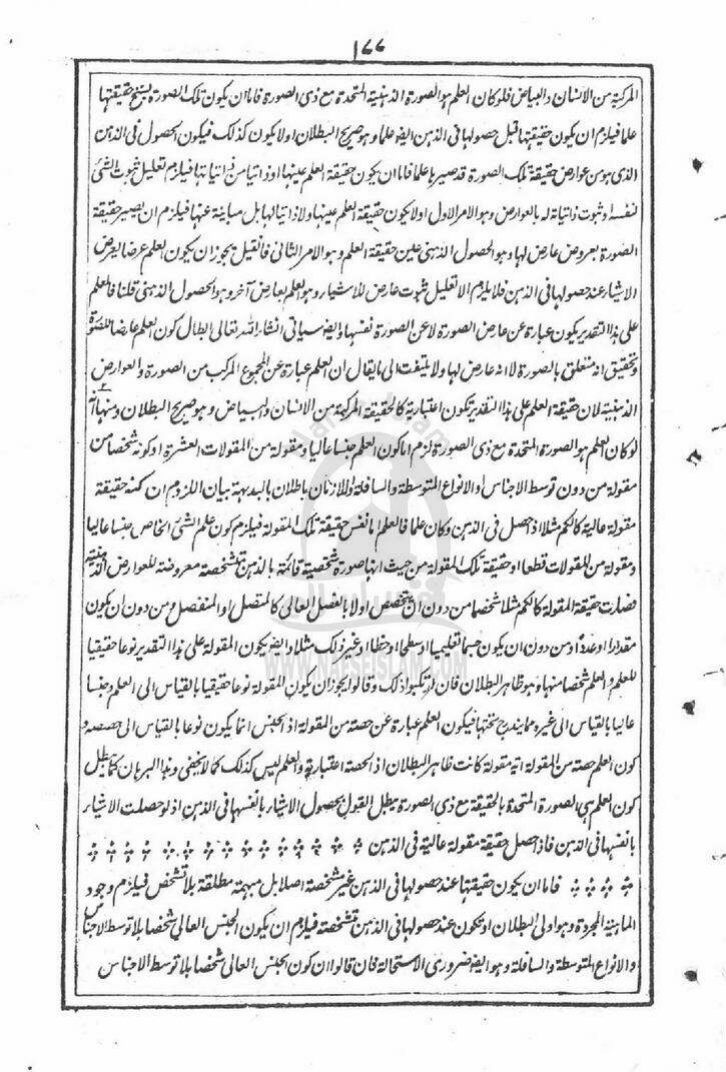 ١٦٦
المركبة من الانسان والبياض فلو كان العلم هو الصورة الذهنية المتحدة مع ذى الصورة فاما ان يكون تلك الصورة بنسخ حقيقتها
علما فيلزم ان يكون حقيقتها قبل حصولها فى الذهن ايضا علما وهو صريح البطلان اولا يكون كذلك فيكون الحصول فى الذهن
الذى هو من عوارض حقيقة تلك الصورة قد صيرها علما فاما ان يكون حقيقة العلم عينها او ذاتيا من ذاتياتها فيلزم تعليل ثبوت الشئ
لنفسه او ثبوت ذاتياته له بالعوارض وهو الامر الاول اولا يكون حقيقة العلم عينها ولا ذاتيا لها بل مباينة عنها فيلزم ان يصير حقيقة
الصورة بعروض عارض لها وهو الحصول الذهنى عين حقيقة العلم وهو الامر الثانى فان قيل يجوز ان يكون العلم عرضا يعرض
الاشياء عند حصولها فى الذهن فلا يلزم الا تعليل ثبوت عارض للاشياء وهو العلم بعارض آخر وهو الحصول الذهنى قلنا فالعلم
على هذا التقدير يكون عبارة عن عارض الصورة لا عن الصورة نفسها وايضا سياتى انشاء الله تعالى ابطال كون العلم عارضا للصورة
وتحقيق انه متعلق بالصورة لا انه عارض لها ولا يلتفت الى ما يقال ان العلم عبارة عن المجموع المركب من الصورة والعوارض
الذهنية لان حقيقة العلم على هذا التقدير تكون اعتبارية كالحقيقة المركبة من الانسان والبياض وهو صريح البطلان ومنها انه
لو كان العلم هو الصورة المتحدة مع ذى الصورة لزم اما كون العلم جنسا عاليا ومقولة من المقولات العشرة او كونه شخصا من
مقولة من دون توسط الاجناس او الانواع المتوسطة والسافلة واللازمان باطلان بالبديهة بيان اللزوم ان كنه حقيقة
مقولة عالية كالكم مثلا اذا حصل فى الذهن وكان علما فالعلم اما نفس حقيقة تلك المقولة فيلزم كون علم الشئ الخاص جنسا عاليا
ومقولة من المقولات قطعا او حقيقة تلك المقولة من حيث انها صورة شخصية قائمة بالذهن متشخصة معروضة للعوارض الذهنية
فصارت حقيقة المقولة كالكم مثلا شخصا من دون ان يتخصص اولا بالفصل العالى كالمتصل او المنفصل ومن دون ان يكون
مقدارا او عددا ومن دون ان يكون جسما تعليميا او سطحا او خطا او غير ذلك مثلا وايضا يكون المقولة على هذا التقدير نوعا حقيقيا
للعلم والعلم شخصا منها وهو ظاهر البطلان فان ارتكبوا ذلك وقالوا يجوز ان يكون المقولة نوعا حقيقيا بالقياس الى العلم وجنسا
عاليا بالقياس الى غيره مما يندرج تحتها فيكون العلم عبارة عن حصة من المقولة اذ الجنس انما يكون نوعا بالقياس الى حصصه و
كون العلم حصة من المقولة اية مقولة كانت ظاهر البطلان اذ الحصة اعتبارية والعلم ليس كذلك كما لا يخفى وهذا البرهان كما يبطل
كون العلم هى الصورة المتحدة بالحقيقة مع ذى الصورة يبطل القول بحصول الاشياء بانفسها فى الذهن اذ لو حصلت الاشياء
بانفسها فى الذهن فاذا حصل حقيقة مقولة عالية فى الذهن
فاما ان يكون حقيقتها عند حصولها فى الذهن غير مشخصة اصلا بل مبهمة مطلقة بلا تشخص فيلزم وجود
الماهية المجردة وهو اولى البطلان او تكون عند حصولها فى الذهن متشخصة فيلزم ان يكون الجنس العالى شخصا بلا توسط الاجناس
والانواع المتوسطة والسافلة وهو ايضا ضرورى الاستحالة فان قالوا ان كون الجنس العالى شخصا بلا توسط الاجناس
WWW.NAFSEISLAM.COM